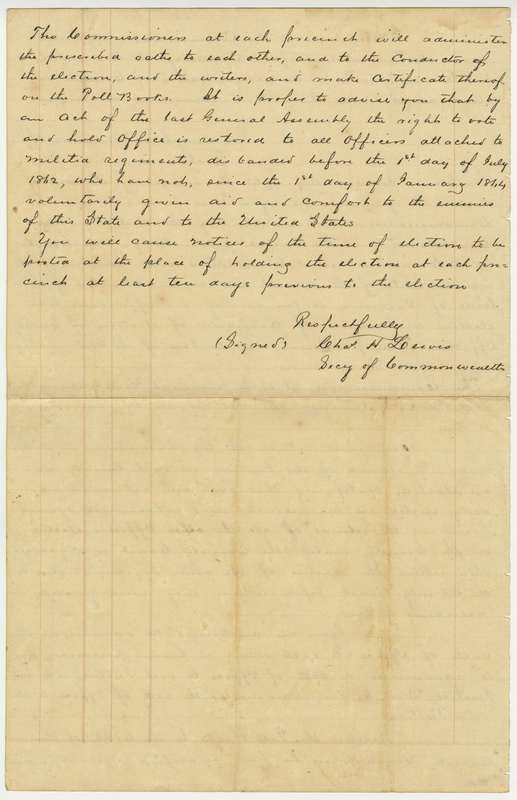 The Commissioners at each precinct will administer
the prescribed oaths to each other, and to the Conductor of
the election, and the writers, and make Certificate thereof
on the Poll Books. It is proper to advise you that by
an act of the last General Assembly the right to vote
and hold Office is restored to all Officers attached to
militia regiments, disbanded before the 1st day of July
1862, who have not, since the 1st day of January 1864
voluntarily given aid and comfort to the enemies
of this State and to the United States
You will cause notices of the time of election to be
posted at the place of holding the election at each pre-
cinct at least ten days previous to the election
Respectfully
(Signed) Chas H Lewis
Secy of Commonwealth